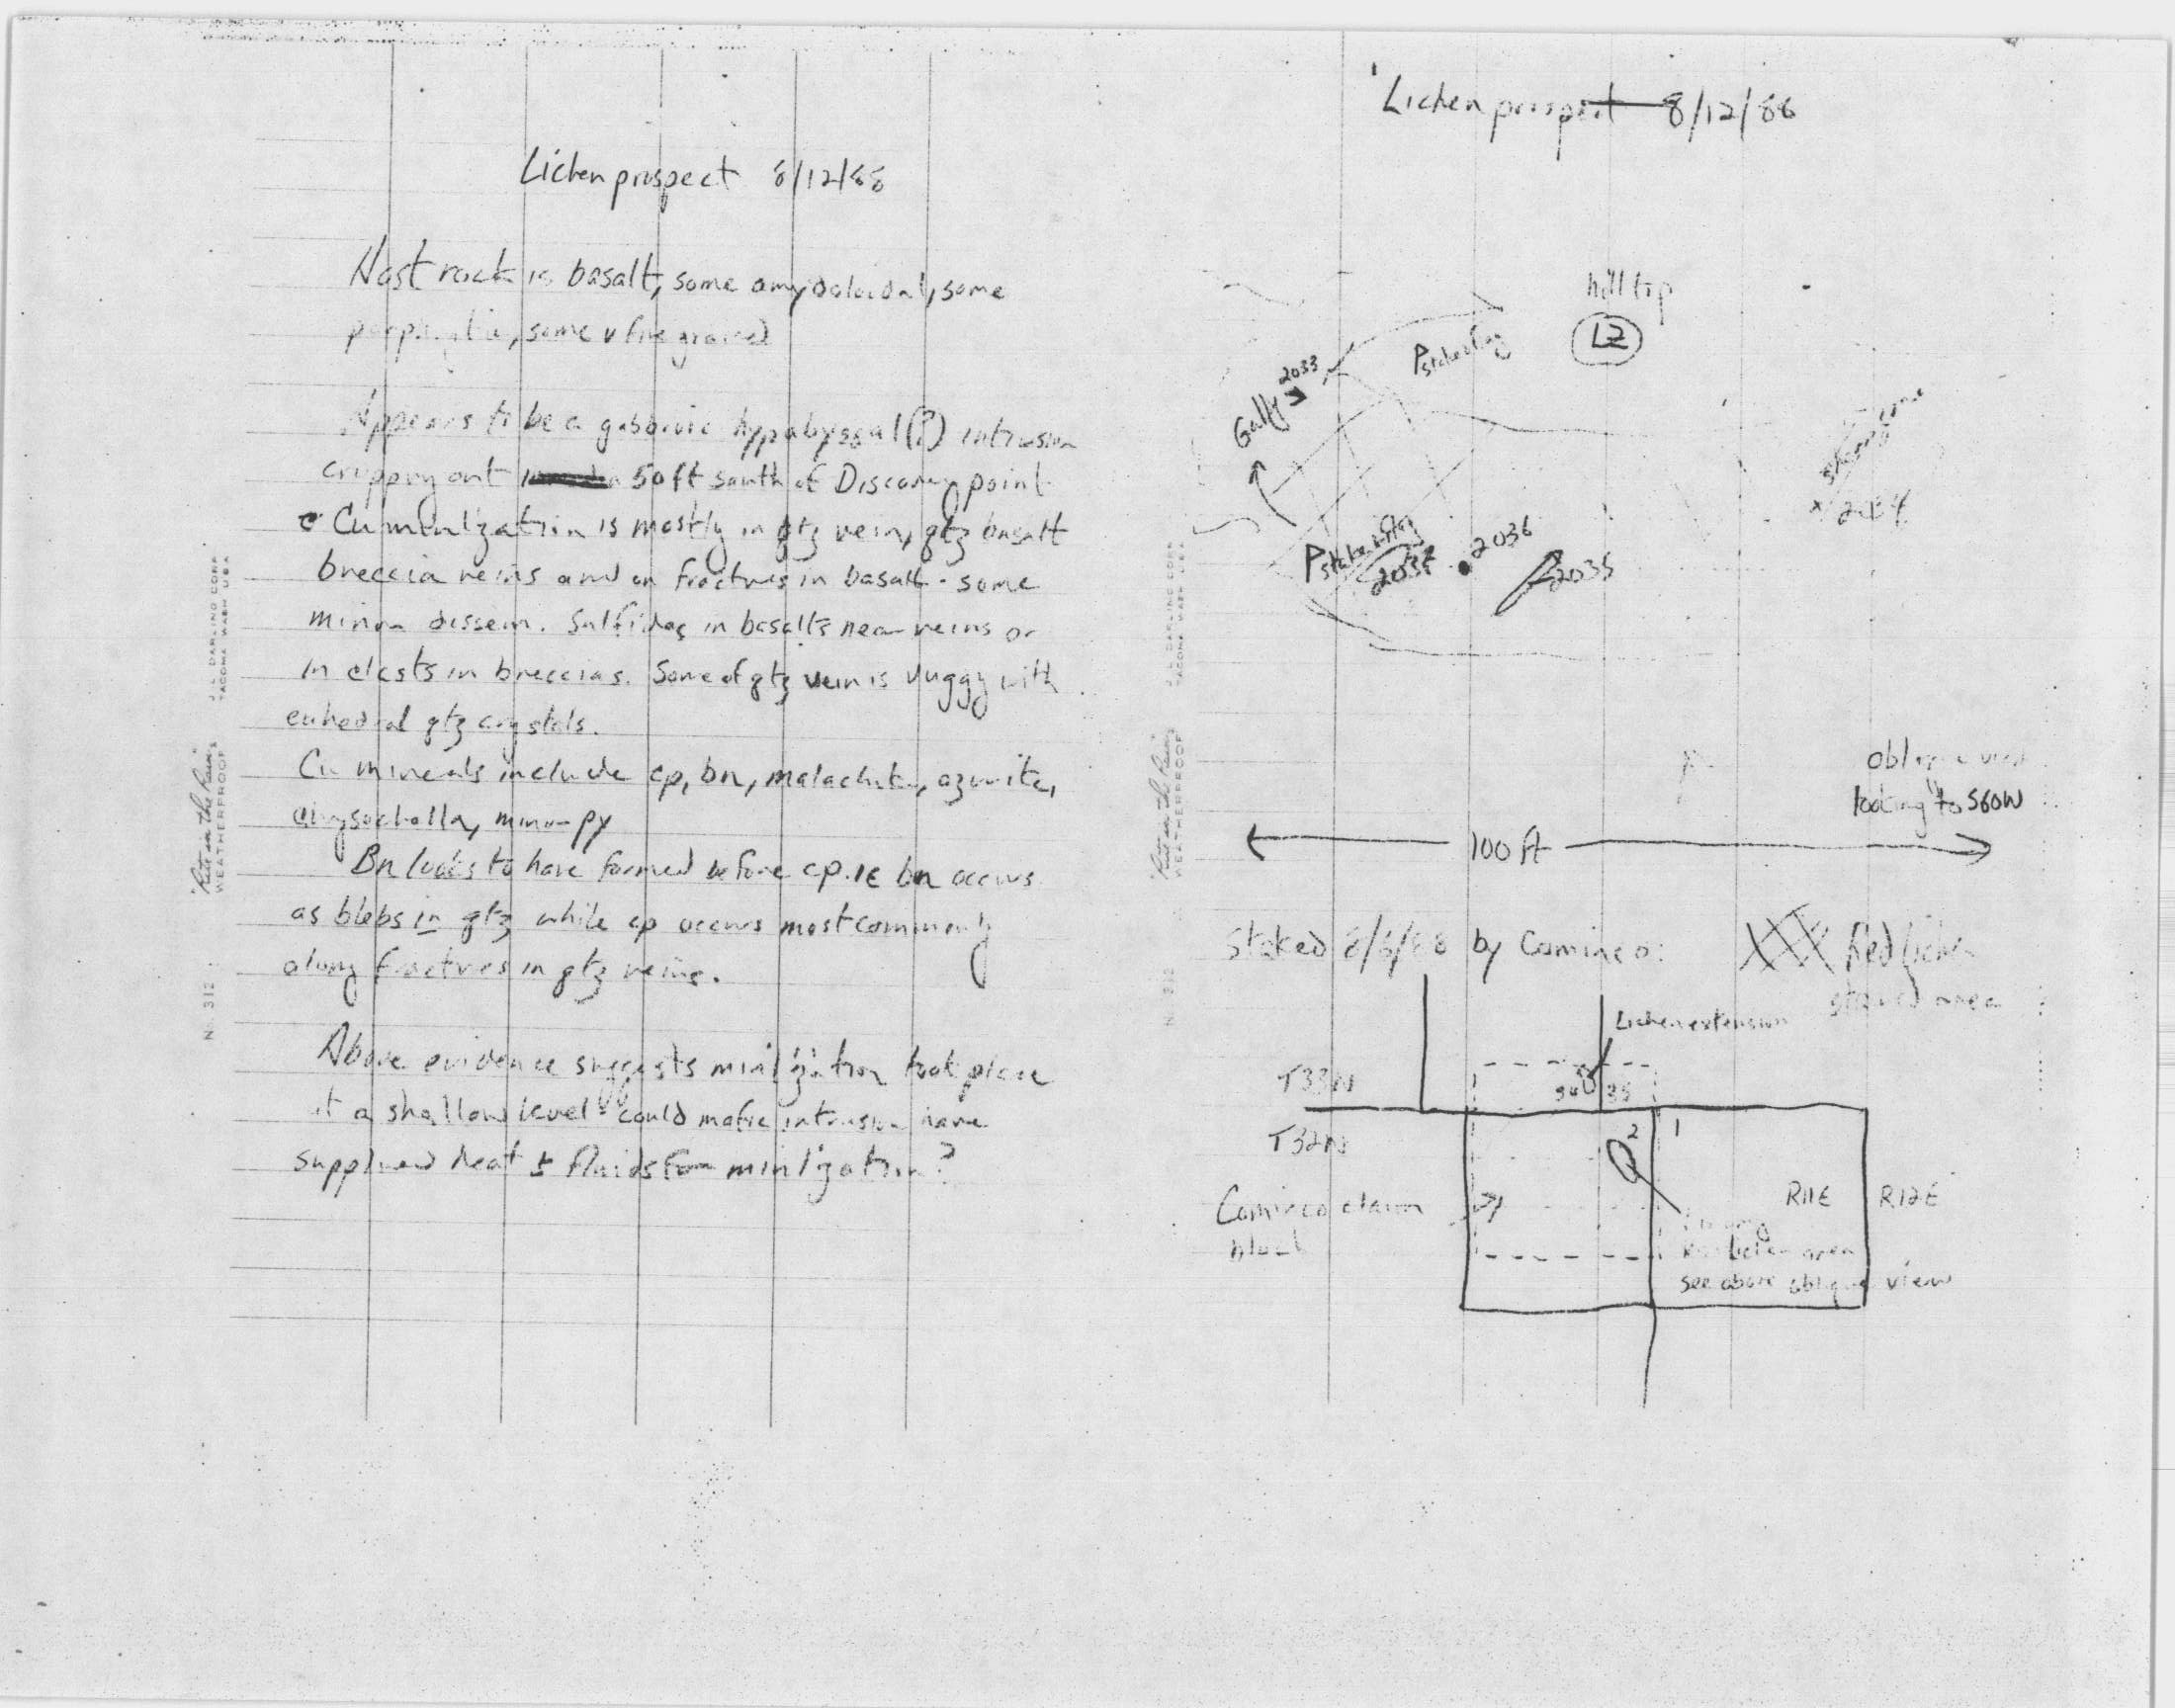 Lichen prospect 8/12/88
Host rock is basalt, some amydaloidal, some
some v fine grained
Appears to be a gabbroic hypabyssal(?) intrusion
cropping out 50 ft south of Discovery point
Cu minlization is mostly in qtz vein, qtz basalt
breccia veins and on fractures in basalt - some
minor dissem. Sulfides in basalts near veins or
in clasts in breccias. Some of qtz vein is vuggy with
euhedral qtz crystals.
Cu minerals include cp, bn, malachite, azurite,
chrysocholla, minor py
Bn looks to have formed before cp. IE bn occurs
as blebs in qtz while cp occurs most commonly
along fractures in qtz veins.
Above evidence suggests minlization took place
at a shallow level - could mafic intrusion have
supplied heat ± fluids for minlization?
"Rite in the Rain"
WEATHERPROOF
J. L. DARLING CORP.
TACOMA WASH USA
N 312
Lichen prospect 8/12/88
hill top
LZ
Stake & flag
2033
Gully
shear zone
x
Stake & flag
2036
2035
oblique view
looking to S60W
100 ft
Staked 8/6/88 by Cominco:
Red lichen
stained area
Lichen extension
T33N
34 35
T32N
2 1
R11E R12E
Cominco claim
block
lichen area
see above oblique view
"Rite in the Rain"
WEATHERPROOF
J. L. DARLING CORP.
TACOMA WASH USA
N 312